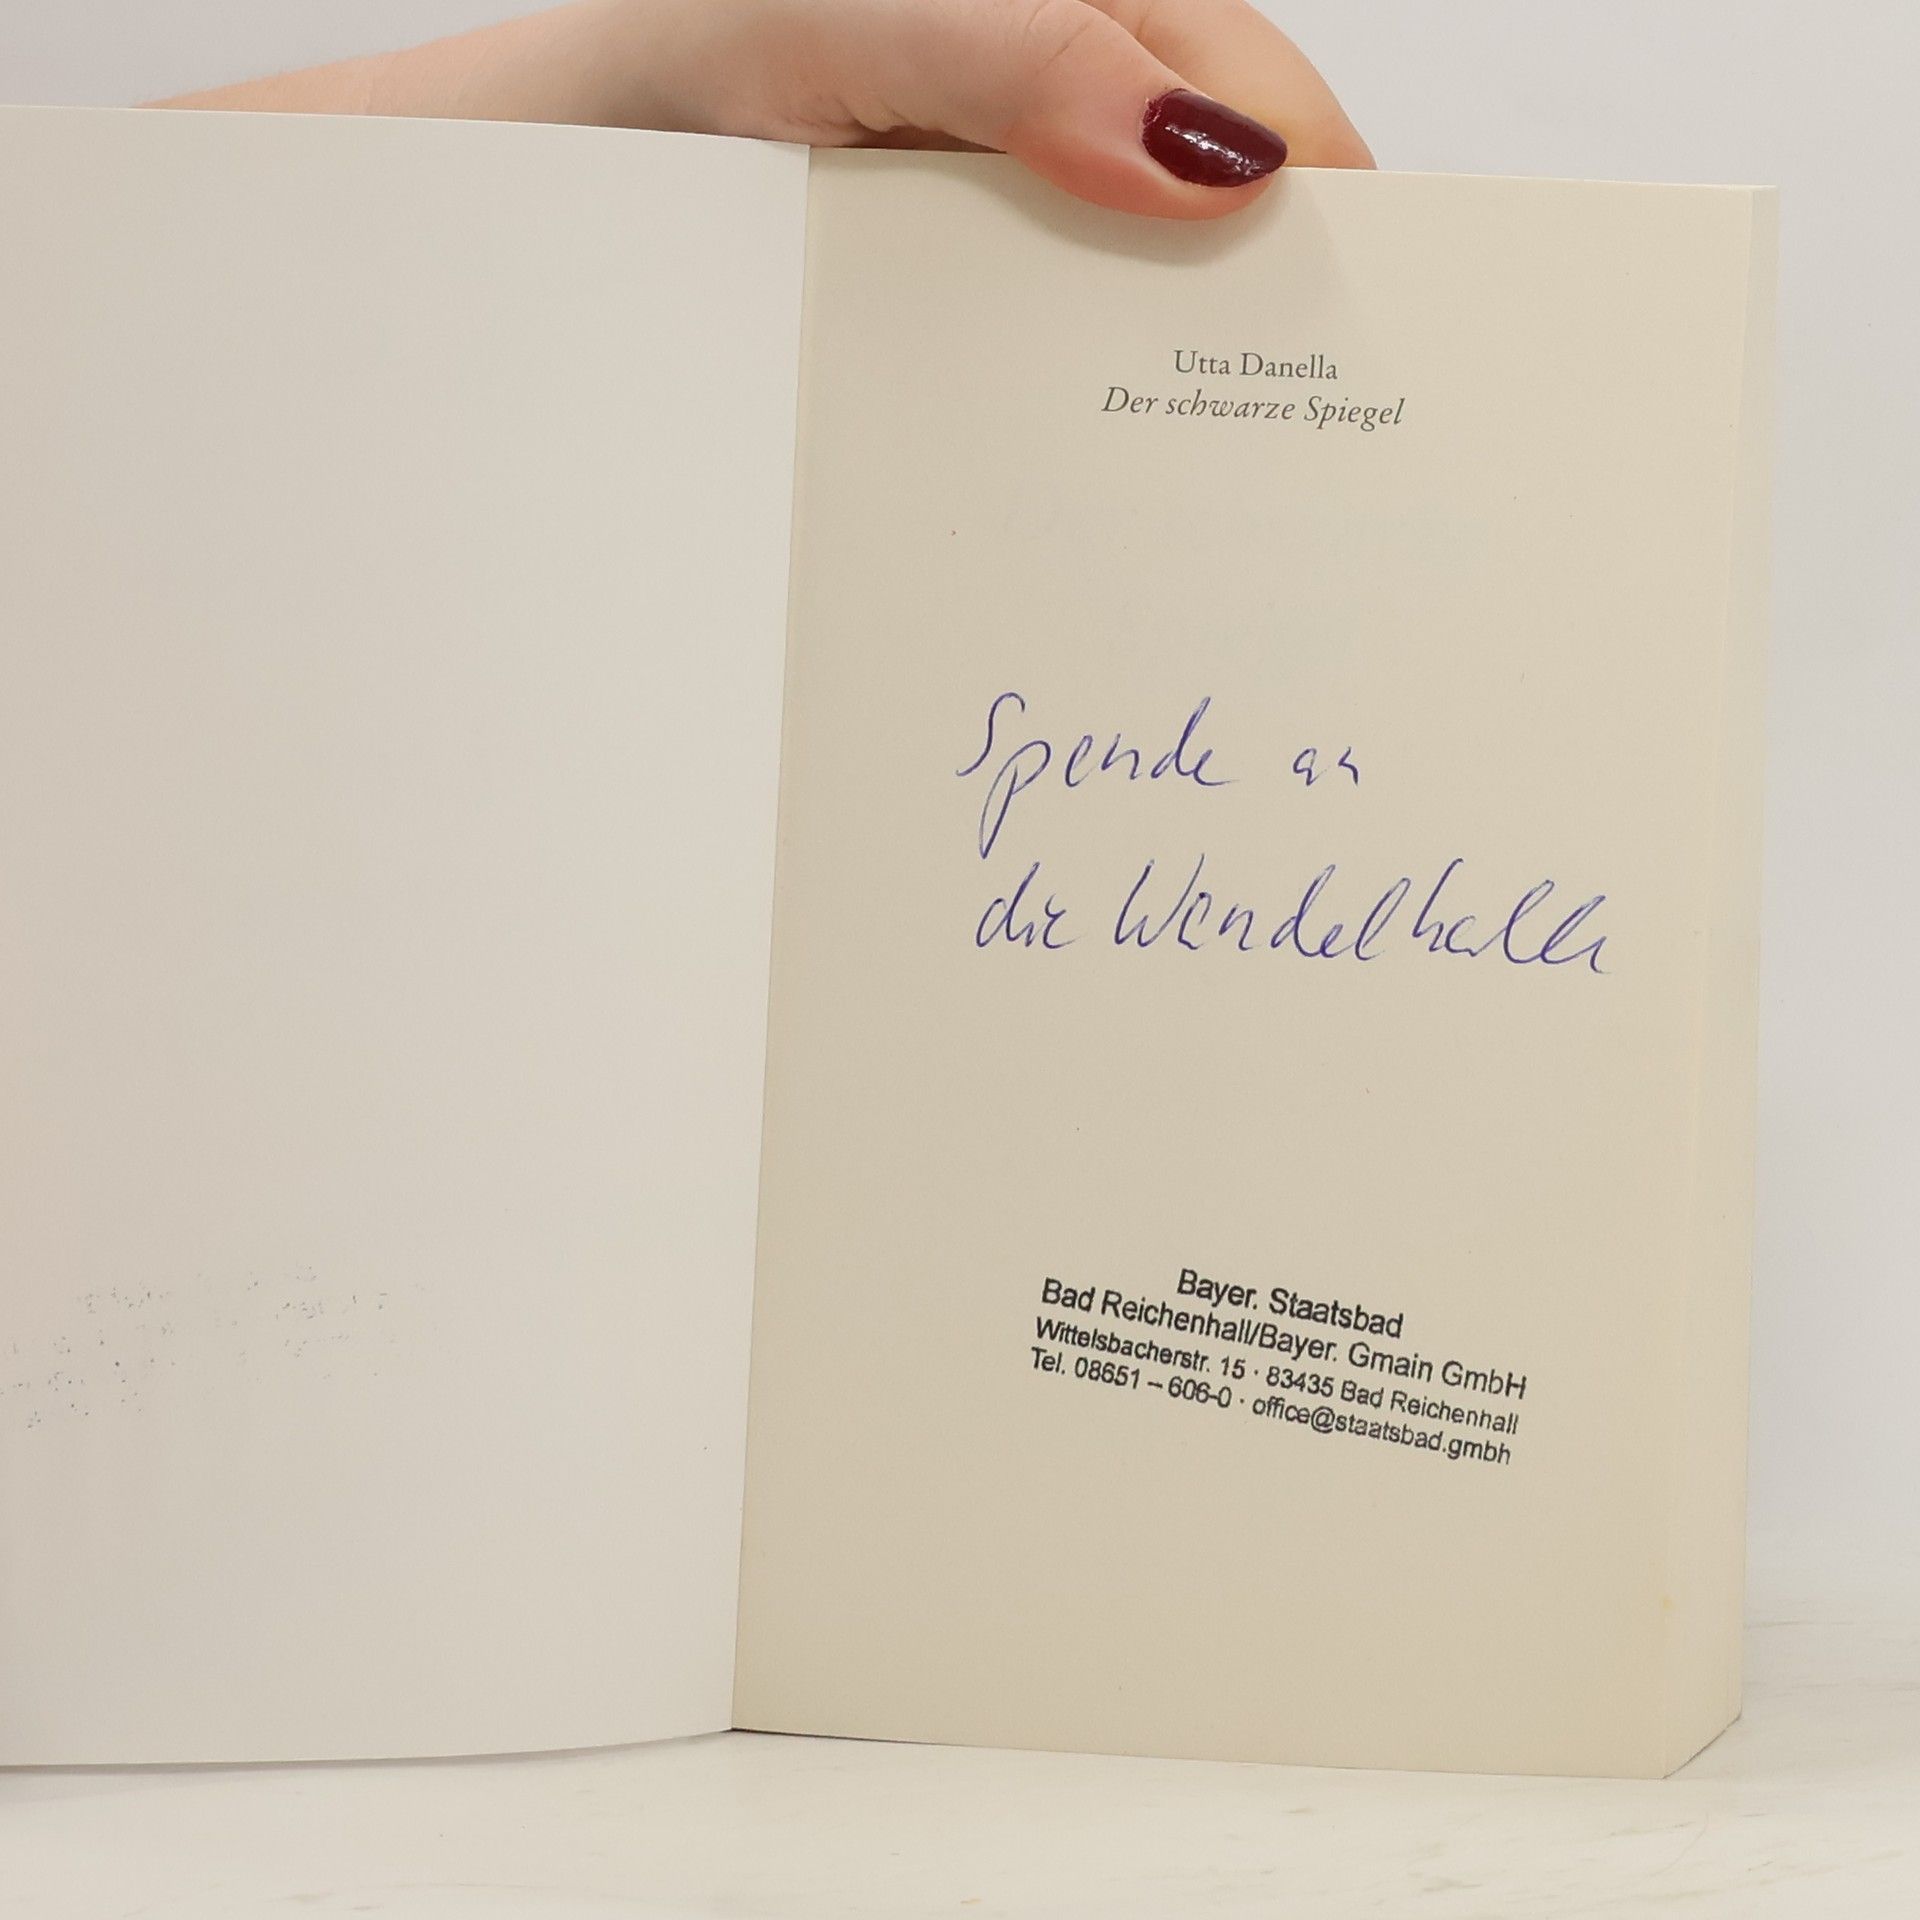 Utta Danella
Der schwarze Spiegel
Spende an
die Wandelhalle
Bayer. Staatsbad
Bad Reichenhall/Bayer. Gmain GmbH
Wittelsbacherstr. 15 · 83435 Bad Reichenhall
Tel. 08651 – 606-0 · office@staatsbad.gmbh